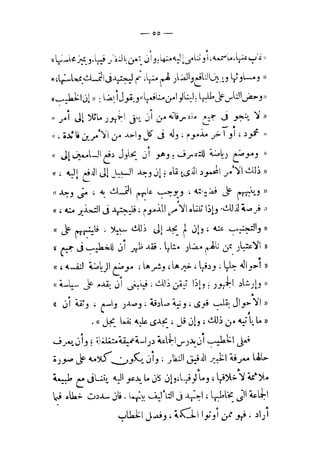 — ٥٥ —
«غاب منها، ماسمعه، أو تنامى إليه منها، وأن يمعن بالنظر فيها، ويميز محاسنها»
«ومساوئها وبين النافع والضار لهم منها، ثم ليجتهد فى التمسك بمحاسنها،»
«وحض الناس على طلبها؛ لينالوا من منافعها» ويقول أيضا: «إن الخطيب»
«لا ينجو فى جميع متصرفاته من أن يلقى الجمهور مائلا إلى أمر»
«محمود، أو آخر مذموم، وله فى كل واحد من الأمرين فائدة،»
«وموضع رياضة للتصرف، وهو أن يحاول دفع السامعين إلى»
«ذلك الأمر المحمود الذى تلقاه؛ إن وجد السبيل إلى الدفع إليه،»
«وينبههم على فضيلته، ويوجب عليهم التمسك به، متى وجد»
«فرصة لذلك. وإذا تلقاه الأمر المذموم، فليجتهد فى التحذير منه،»
«والتجنيب عنه، وإن لم يجد إلى ذلك سبيلا. فلينبههم على»
«الاعتبار بمن نالهم مضار مثالها. فقد ظهر أن للخطيب فى جميع»
«أحواله جلها، ودقها، خيرها، وشرها: موضع الرياضة لنفسه،»
«وإرشاد الجمهور؛ وإذا تيقن ذلك. فينبغى أن يقدم على سياسة»
«الأحوال بقلب قوى، ونية صادقة، وصدر واسع، وثقة أن»
«ما يأتيه من ذلك، وإن قل، يجدى عليه نفعا يجل».
فعلى الخطيب أن يدرس الجماعة دراسة عميقة متغلغلة؛ وأن يعرف
حالها معرفة الخبير الدقيق النظر، وأن يكون كلامه على صورة
ملائمة لأخلاقها، ومألوفها، وإن كان ما يدعو إليه يتنافى مع طبيعة
الجماعة التى يخاطبها، اجتهد فى التأليف بينهما. فان سددت خطاه فيما
أراد. فهو ممن أوتوا الحكمة، وفصل الخطاب